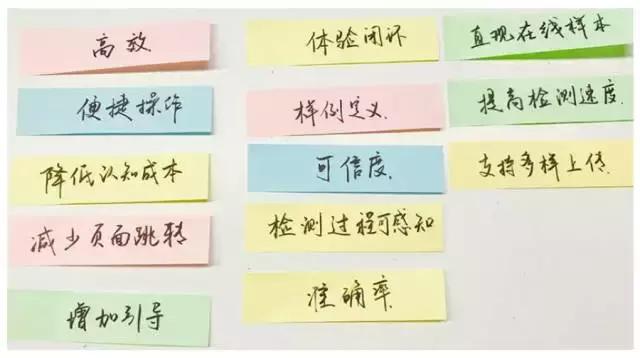 高效
便捷操作
降低认知成本
减少页面跳转
增加引导
体验闭环
样例定义
可信度
检测过程可感知
准确率
直观在线样本
提高检测速度
支持多样上传